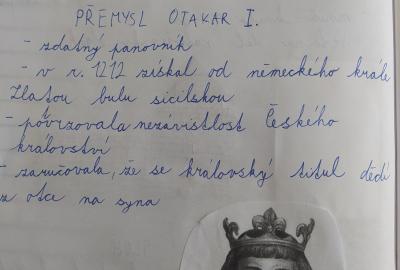 PŘEMYSL OTAKAR I.
- zdatný panovník
- v r. 1212 získal od německého krále
Zlatou bulu sicilskou
- potvrzovala nezávistlost Českého
království
- zaručovala, že se královský titul dědí
z otce na syna